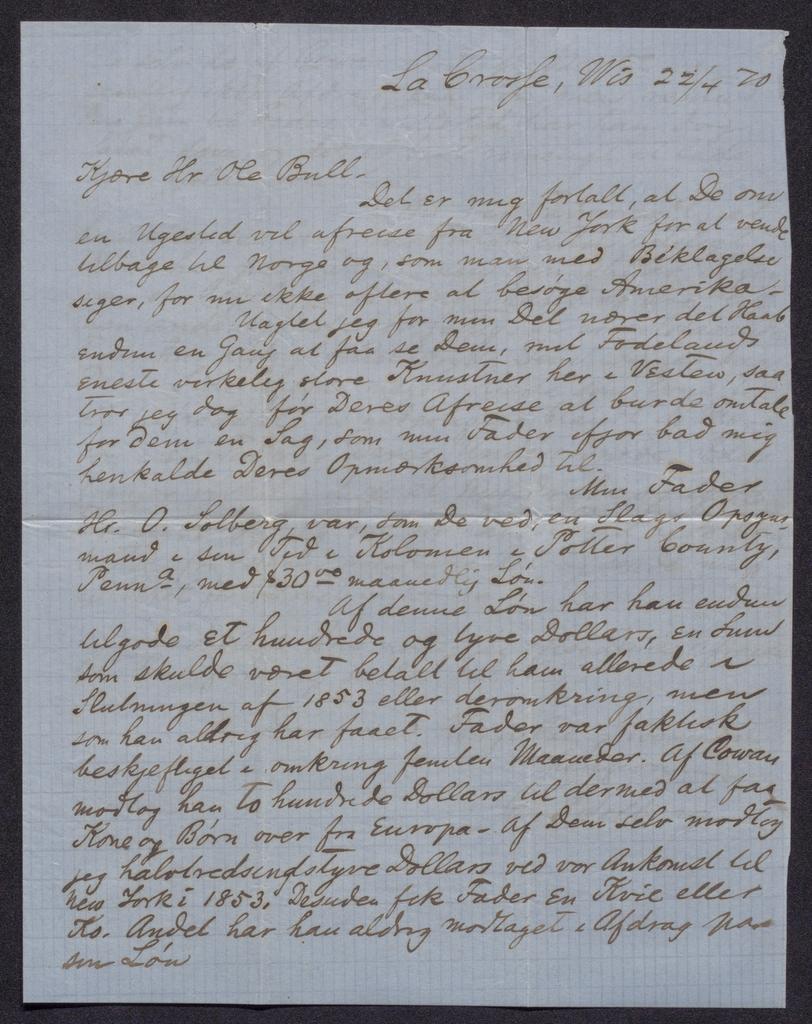 La Crosse, Wis 22/4 70
Kjære Hr Ole Bull.
Det er mig fortalt, at De om
en Ugestid vil afreise fra New York for at vende
tilbage til Norge og, som man med Beklagelse
siger, for nu ikke oftere at besöge Amerika.
Uagtet jeg for min Del nærer det Haab
endnu en Gang at faa se Dem, mit Fødelands
eneste virkelig store Kunstner her i Vesten, saa
tror jeg dog før Deres Afreise at burde omtale
for Dem en Sag, som min Fader ifjor bad mig
henkalde Deres Opmærksomhed til.
Min Fader
Hr. O. Solberg, var, som De ved, en Slags Opsyns
mand i sin Tid i Kolonien i Potter County,
Penna, med $30 00 maanedlig Løn.
Af denne Løn har han endnu
tilgode et hundrede og tyve Dollars, en Sum
som skulde været betalt til ham allerede i
Slutningen af 1853 eller deromkring, men
som han aldrig har faaet. Fader var faktisk
beskjeftiget i omkring femten Maaneder. Af Cowan
modtog han to hundrede Dollars til dermed at faa
Kone og Børn over fra Europa. Af Dem selv modtog
jeg halvtredsindstyve Dollars ved vor Ankomst til
New York i 1853. Desuden fik Fader en Kvie eller
Ko. Andet har han aldrig modtaget i Afdrag paa
sin Løn